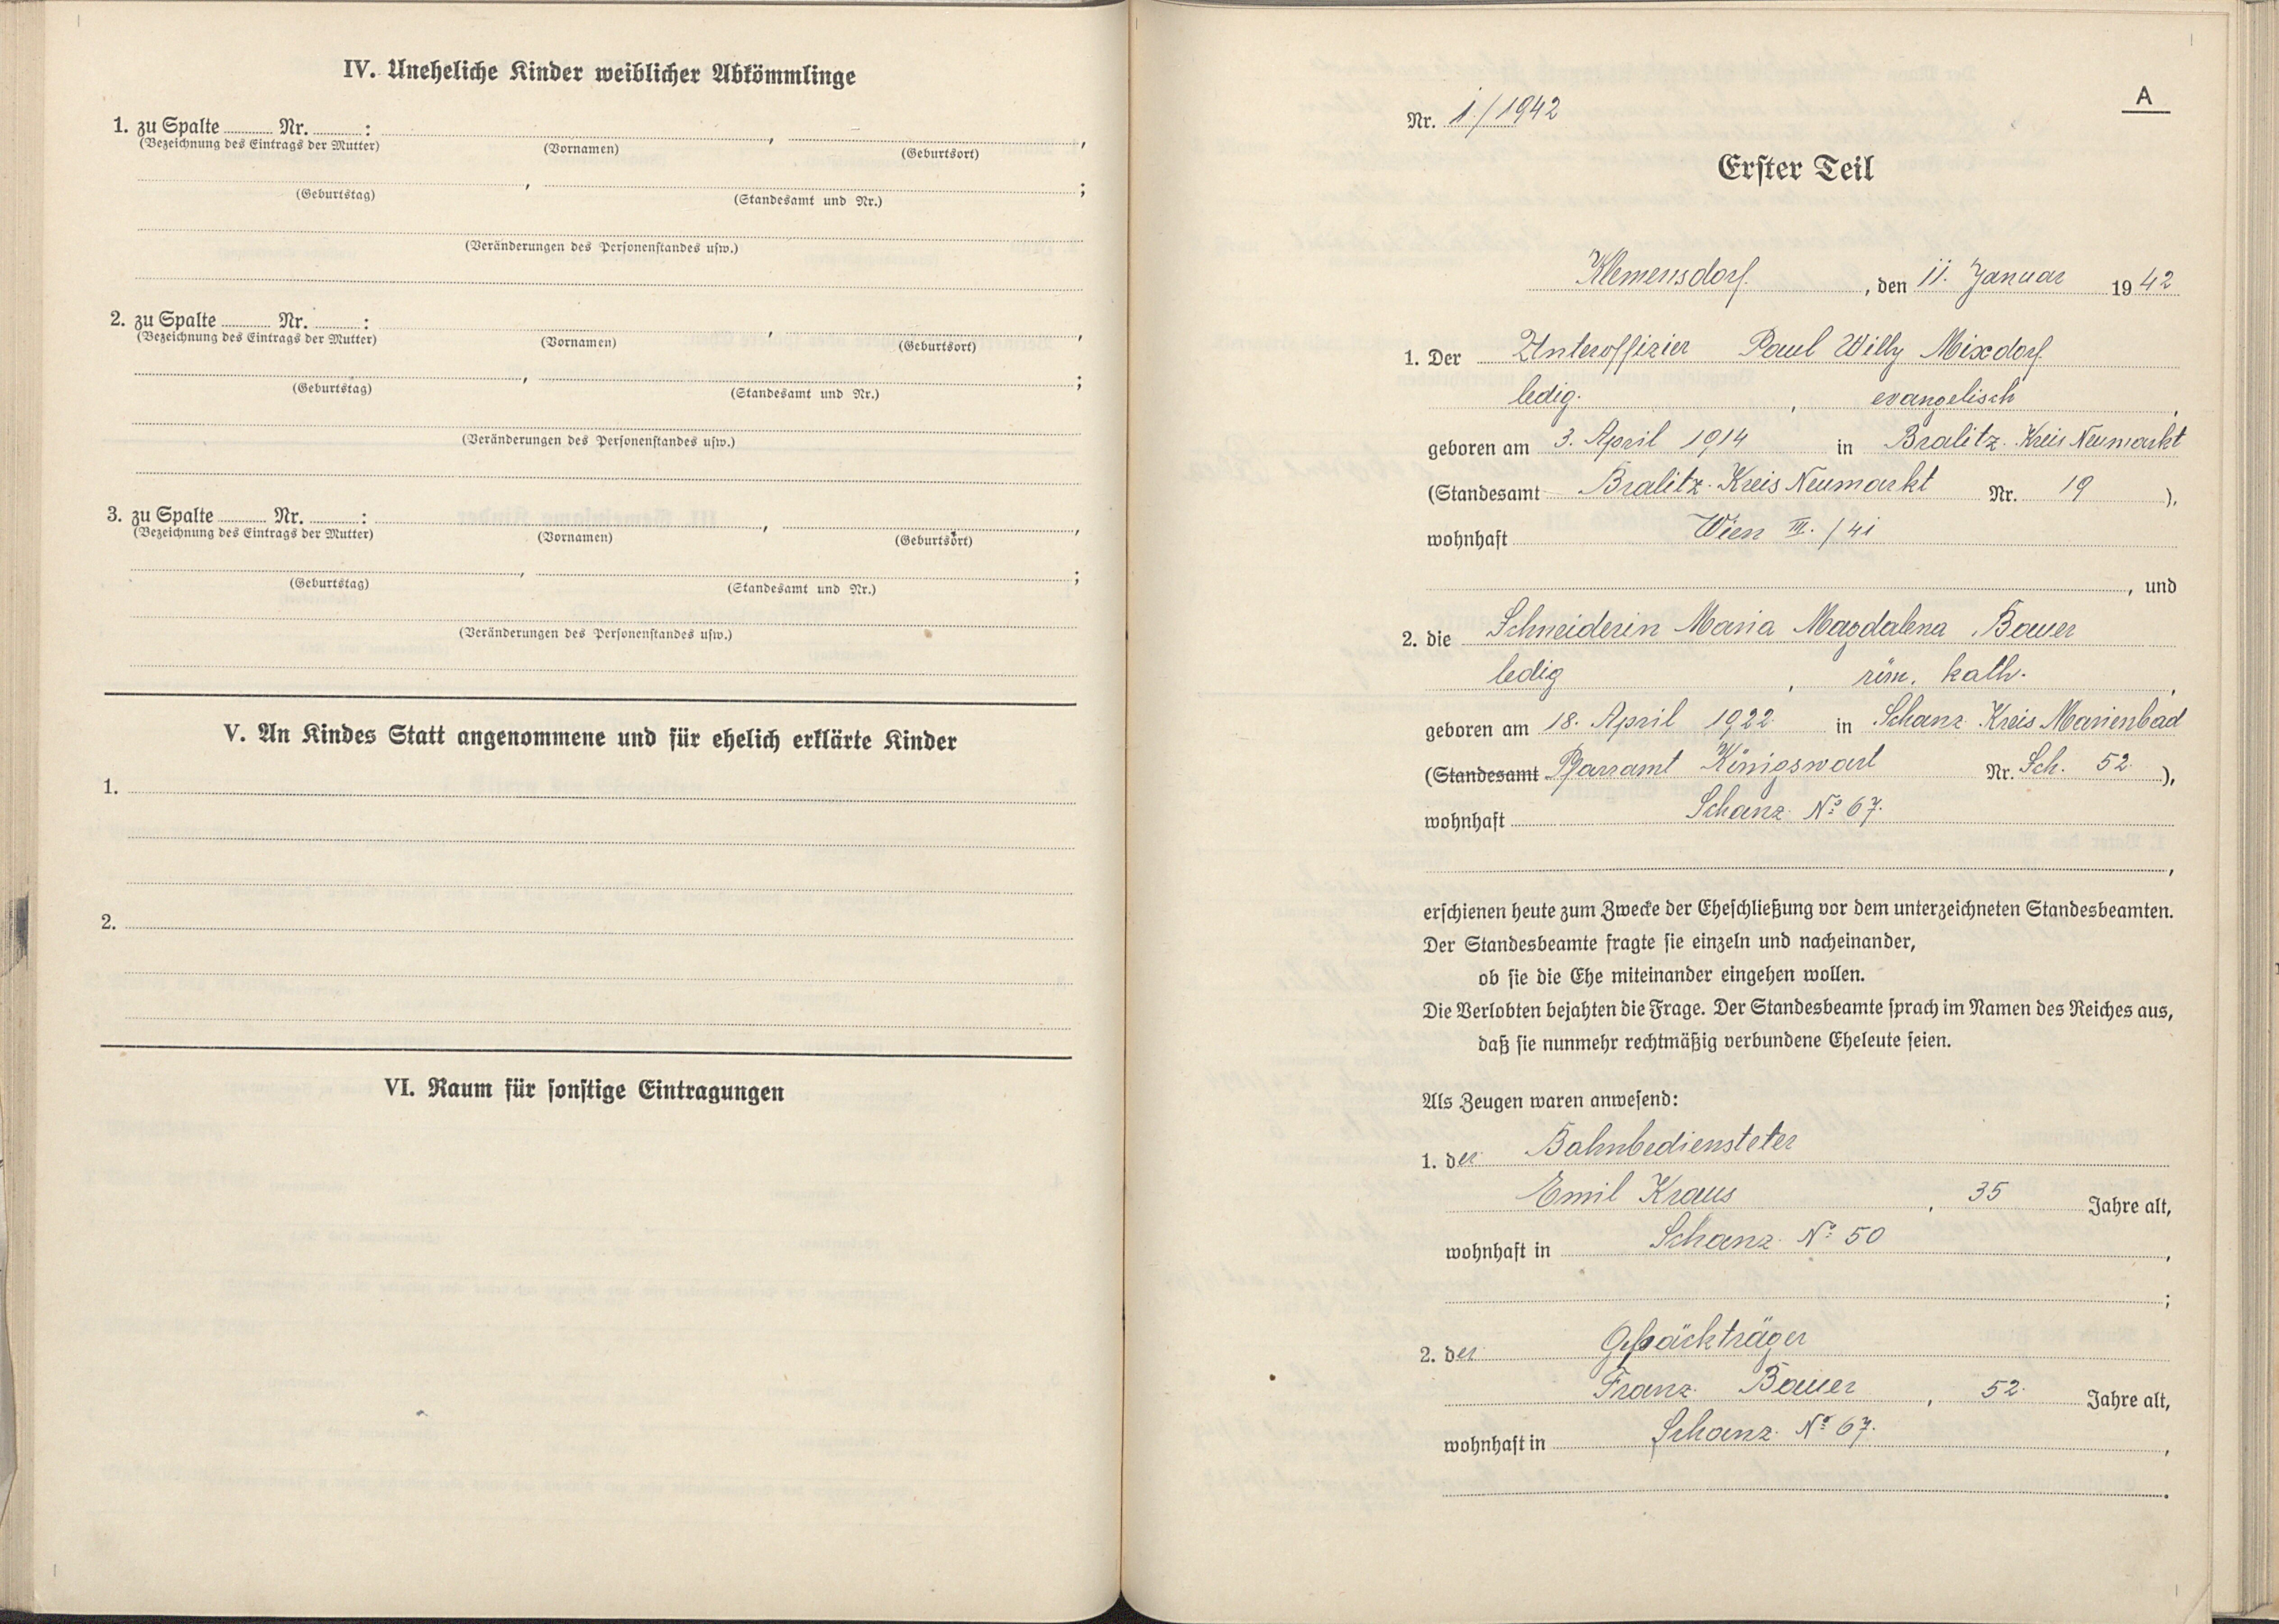 IV. Uneheliche Kinder weiblicher Abkömmlinge
1. zu Spalte ........ Nr. ........ : ........ , ........ ,
(Bezeichnung des Eintrags der Mutter) (Vornamen) (Geburtsort)
........ , ........ ;
(Geburtstag) (Standesamt und Nr.)
(Veränderungen des Personenstandes usw.)
2. zu Spalte ........ Nr. ........ : ........ , ........ ,
(Bezeichnung des Eintrags der Mutter) (Vornamen) (Geburtsort)
........ , ........ ;
(Geburtstag) (Standesamt und Nr.)
(Veränderungen des Personenstandes usw.)
3. zu Spalte ........ Nr. ........ : ........ , ........ ,
(Bezeichnung des Eintrags der Mutter) (Vornamen) (Geburtsort)
........ , ........ ;
(Geburtstag) (Standesamt und Nr.)
(Veränderungen des Personenstandes usw.)
V. An Kindes Statt angenommene und für ehelich erklärte Kinder
1.
2.
VI. Raum für sonstige Eintragungen
A
Nr. 1./1942
Erster Teil
Klemensdorf. , den 11. Januar 1942
1. Der Unteroffizier Paul Willy Mixdorf.
ledig. , evangelisch ,
geboren am 3. April 1914 in Bralitz. Kreis Neumarkt
(Standesamt Bralitz. Kreis Neumarkt Nr. 19 ),
wohnhaft Wien III./41
, und
2. die Schneiderin Maria Magdalena Bauer
ledig , röm. kath. ,
geboren am 18. April 1922 in Schanz Kreis Marienbad
(Standesamt Pfarramt Königswart Nr. Sch. 52. ),
wohnhaft Schanz Nº 67.
,
erschienen heute zum Zwecke der Eheschließung vor dem unterzeichneten Standesbeamten.
Der Standesbeamte fragte sie einzeln und nacheinander,
ob sie die Ehe miteinander eingehen wollen.
Die Verlobten bejahten die Frage. Der Standesbeamte sprach im Namen des Reiches aus,
daß sie nunmehr rechtmäßig verbundene Eheleute seien.
Als Zeugen waren anwesend:
1. der Bahnbediensteter
Emil Kraus , 35 Jahre alt,
wohnhaft in Schanz Nº 50 ,
;
2. der Gepäckträger
Franz Bauer , 52. Jahre alt,
wohnhaft in Schanz Nº 67. ,
.